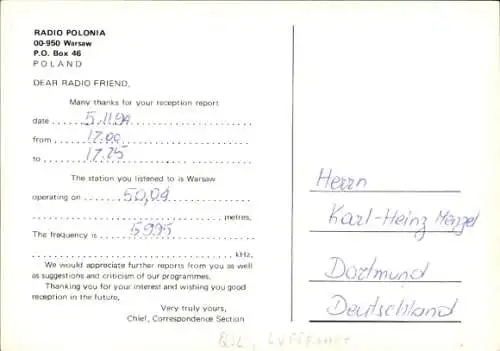 RADIO POLONIA
00-950 Warsaw
P.O. Box 46
POLAND
DEAR RADIO FRIEND,
Many thanks for your reception report
date 5.11.94
from 17.00
to 17.25
The station you listened to is Warsaw
operating on 50,04
metres.
The frequency is 5995
kHz.
We would appreciate further reports from you as well
as suggestions and criticism of our programmes.
Thanking you for your interest and wishing you good
reception in the future,
Very truly yours,
Chief, Correspondence Section
Herrn
Karl-Heinz Menzel
Dortmund
Deutschland
QSL, LUFTFAHRT